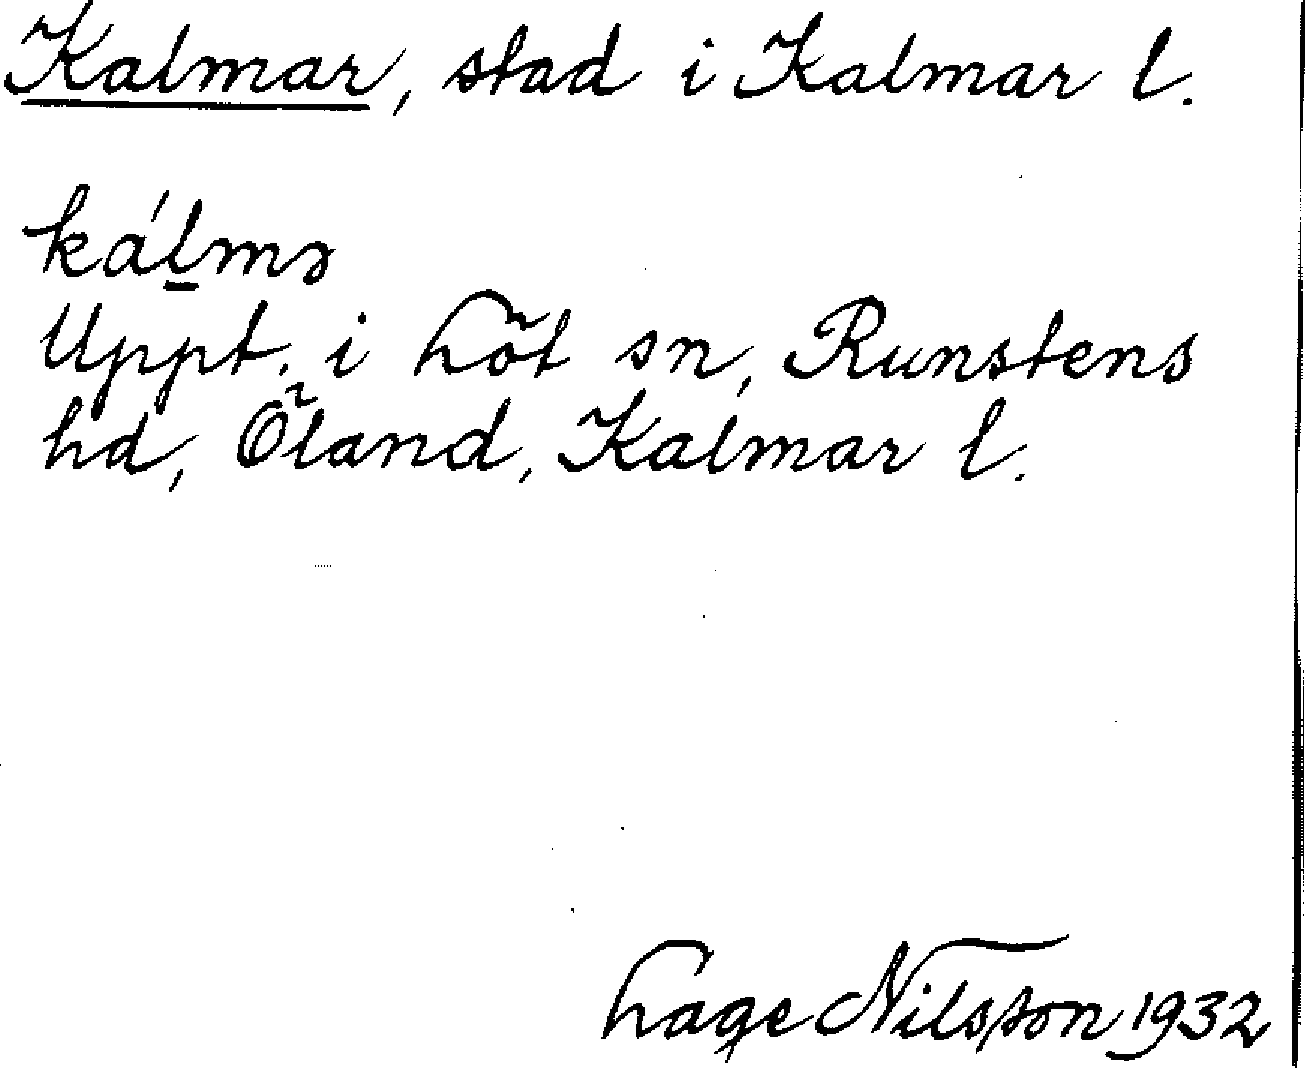 Kalmar, stad i Kalmar l.
kál̲mə
Uppt. i Löt sn, Runstens
hd, Öland, Kalmar l.
Lage Nilsson 1932